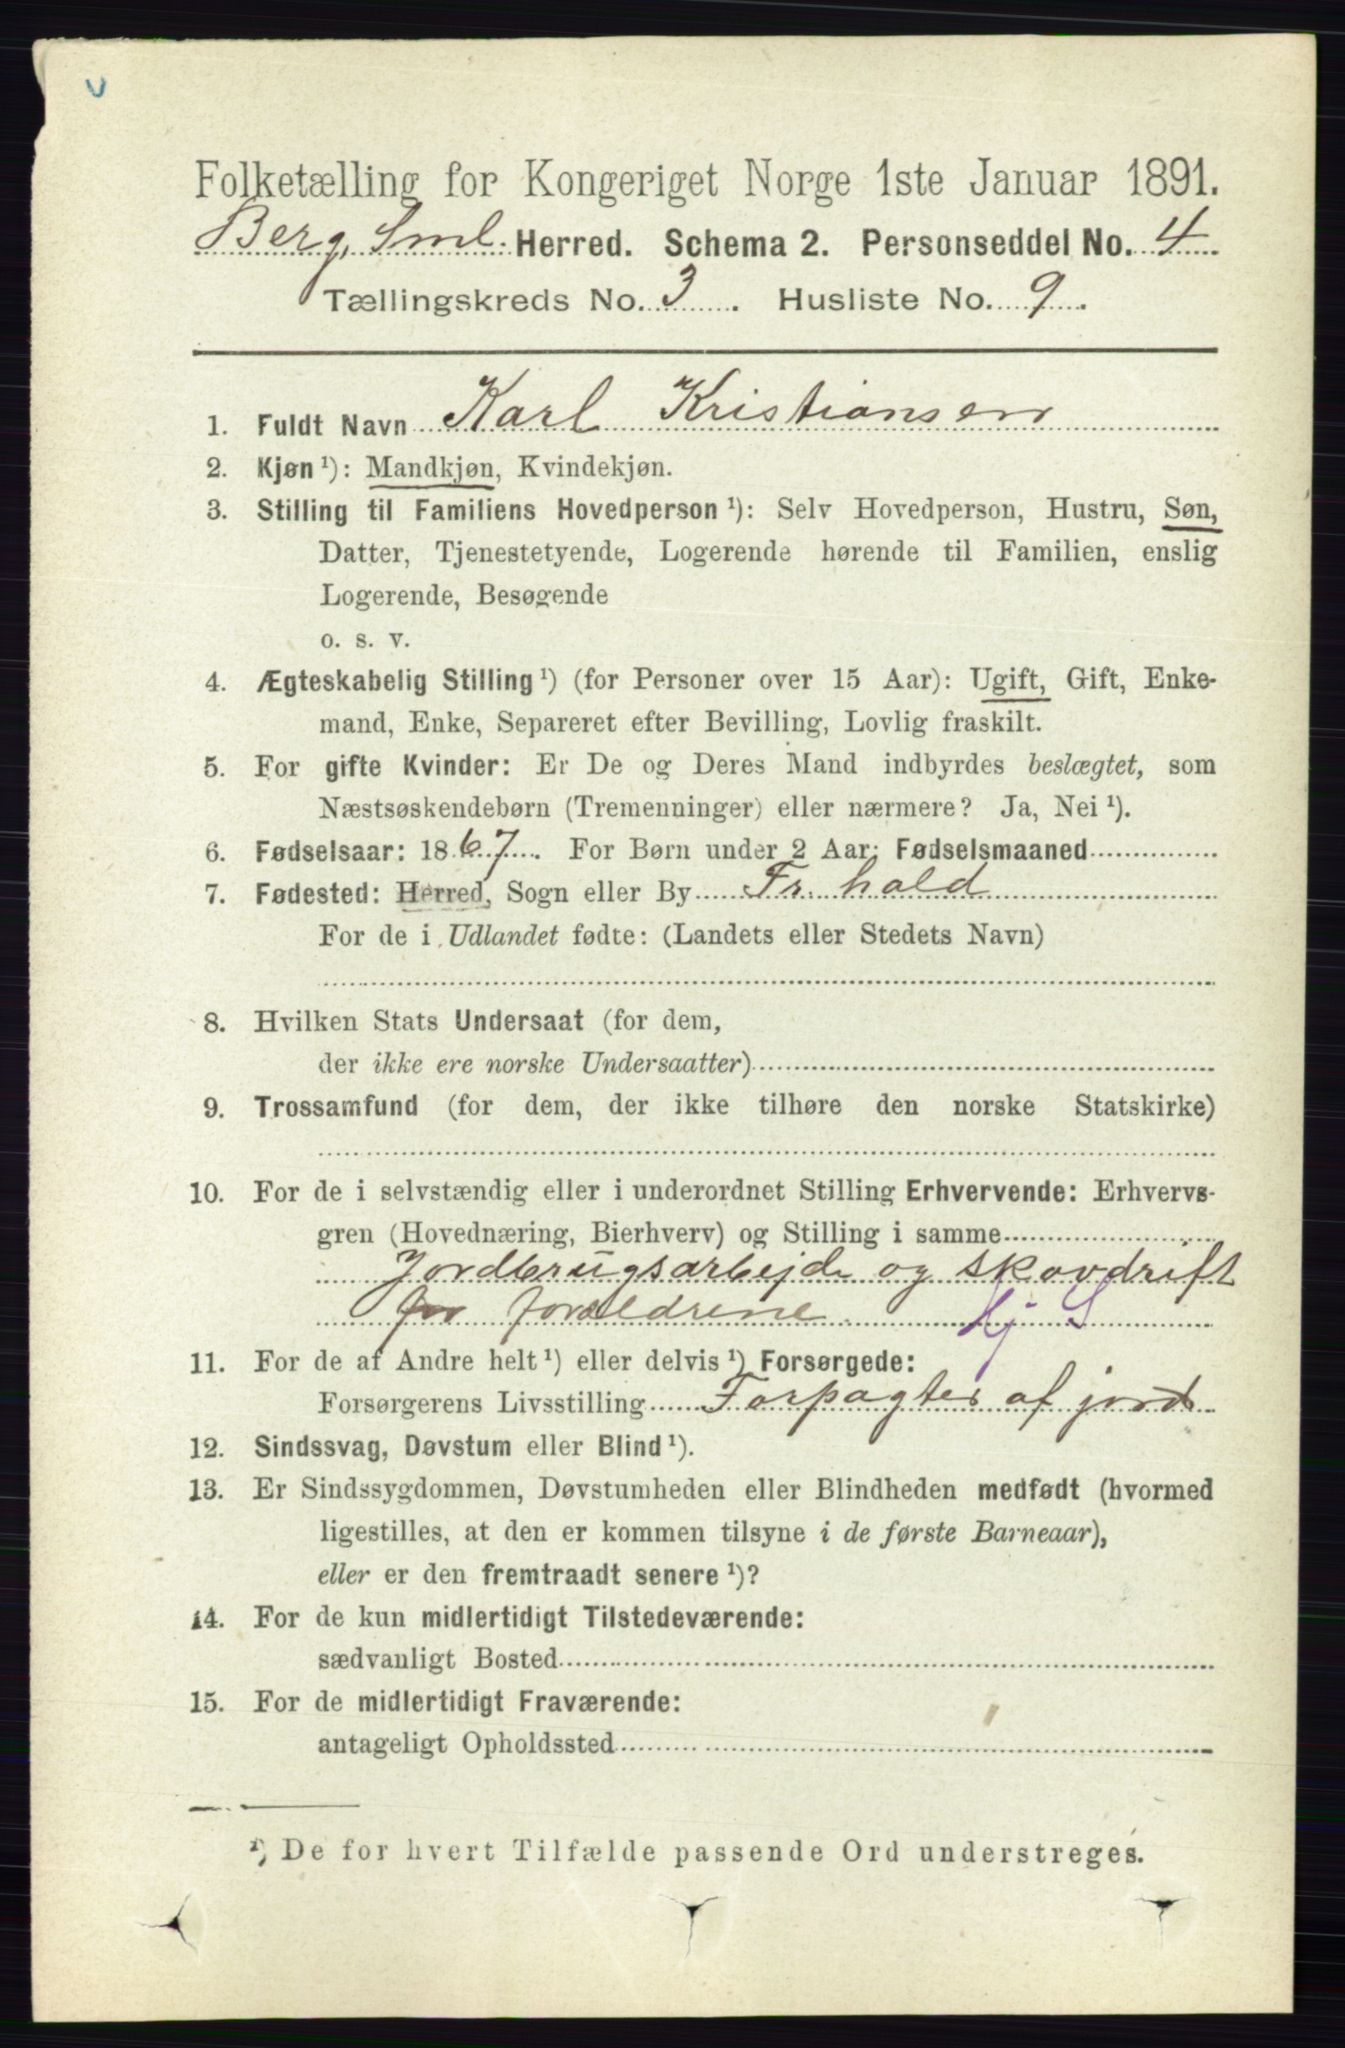 Folketælling for Kongeriget Norge 1ste Januar 1891.
Berg, Sml. Herred. Schema 2. Personseddel No. 4
Tællingskreds No. 3. Husliste No. 9.
1. Fuldt Navn Karl Kristiansen
2. Kjøn ¹): Mandkjøn, Kvindekjøn.
3. Stilling til Familiens Hovedperson ¹): Selv Hovedperson, Hustru, Søn,
Datter, Tjenestetyende, Logerende hørende til Familien, enslig
Logerende, Besøgende
o. s. v.
4. Ægteskabelig Stilling ¹) (for Personer over 15 Aar): Ugift, Gift, Enke-
mand, Enke, Separeret efter Bevilling, Lovlig fraskilt.
5. For gifte Kvinder: Er De og Deres Mand indbyrdes beslægtet, som
Næstsøskendebørn (Tremenninger) eller nærmere? Ja, Nei ¹).
6. Fødselsaar: 1867. For Børn under 2 Aar: Fødselsmaaned
7. Fødested: Herred, Sogn eller By Fr. hald
For de i Udlandet fødte: (Landets eller Stedets Navn)
8. Hvilken Stats Undersaat (for dem,
der ikke ere norske Undersaatter)
9. Trossamfund (for dem, der ikke tilhøre den norske Statskirke)
10. For de i selvstændig eller i underordnet Stilling Erhvervende: Erhvervs-
gren (Hovednæring, Bierhverv) og Stilling i samme
Jordbrugsarbejde og skovdrift
for forældrene. Hj S
11. For de af Andre helt ¹) eller delvis ¹) Forsørgede:
Forsørgerens Livsstilling Forpagter af jord
12. Sindssvag, Døvstum eller Blind ¹).
13. Er Sindssygdommen, Døvstumheden eller Blindheden medfødt (hvormed
ligestilles, at den er kommen tilsyne i de første Barneaar),
eller er den fremtraadt senere ¹)?
14. For de kun midlertidigt Tilstedeværende:
sædvanligt Bosted
15. For de midlertidigt Fraværende:
antageligt Opholdssted
¹) De for hvert Tilfælde passende Ord understreges.